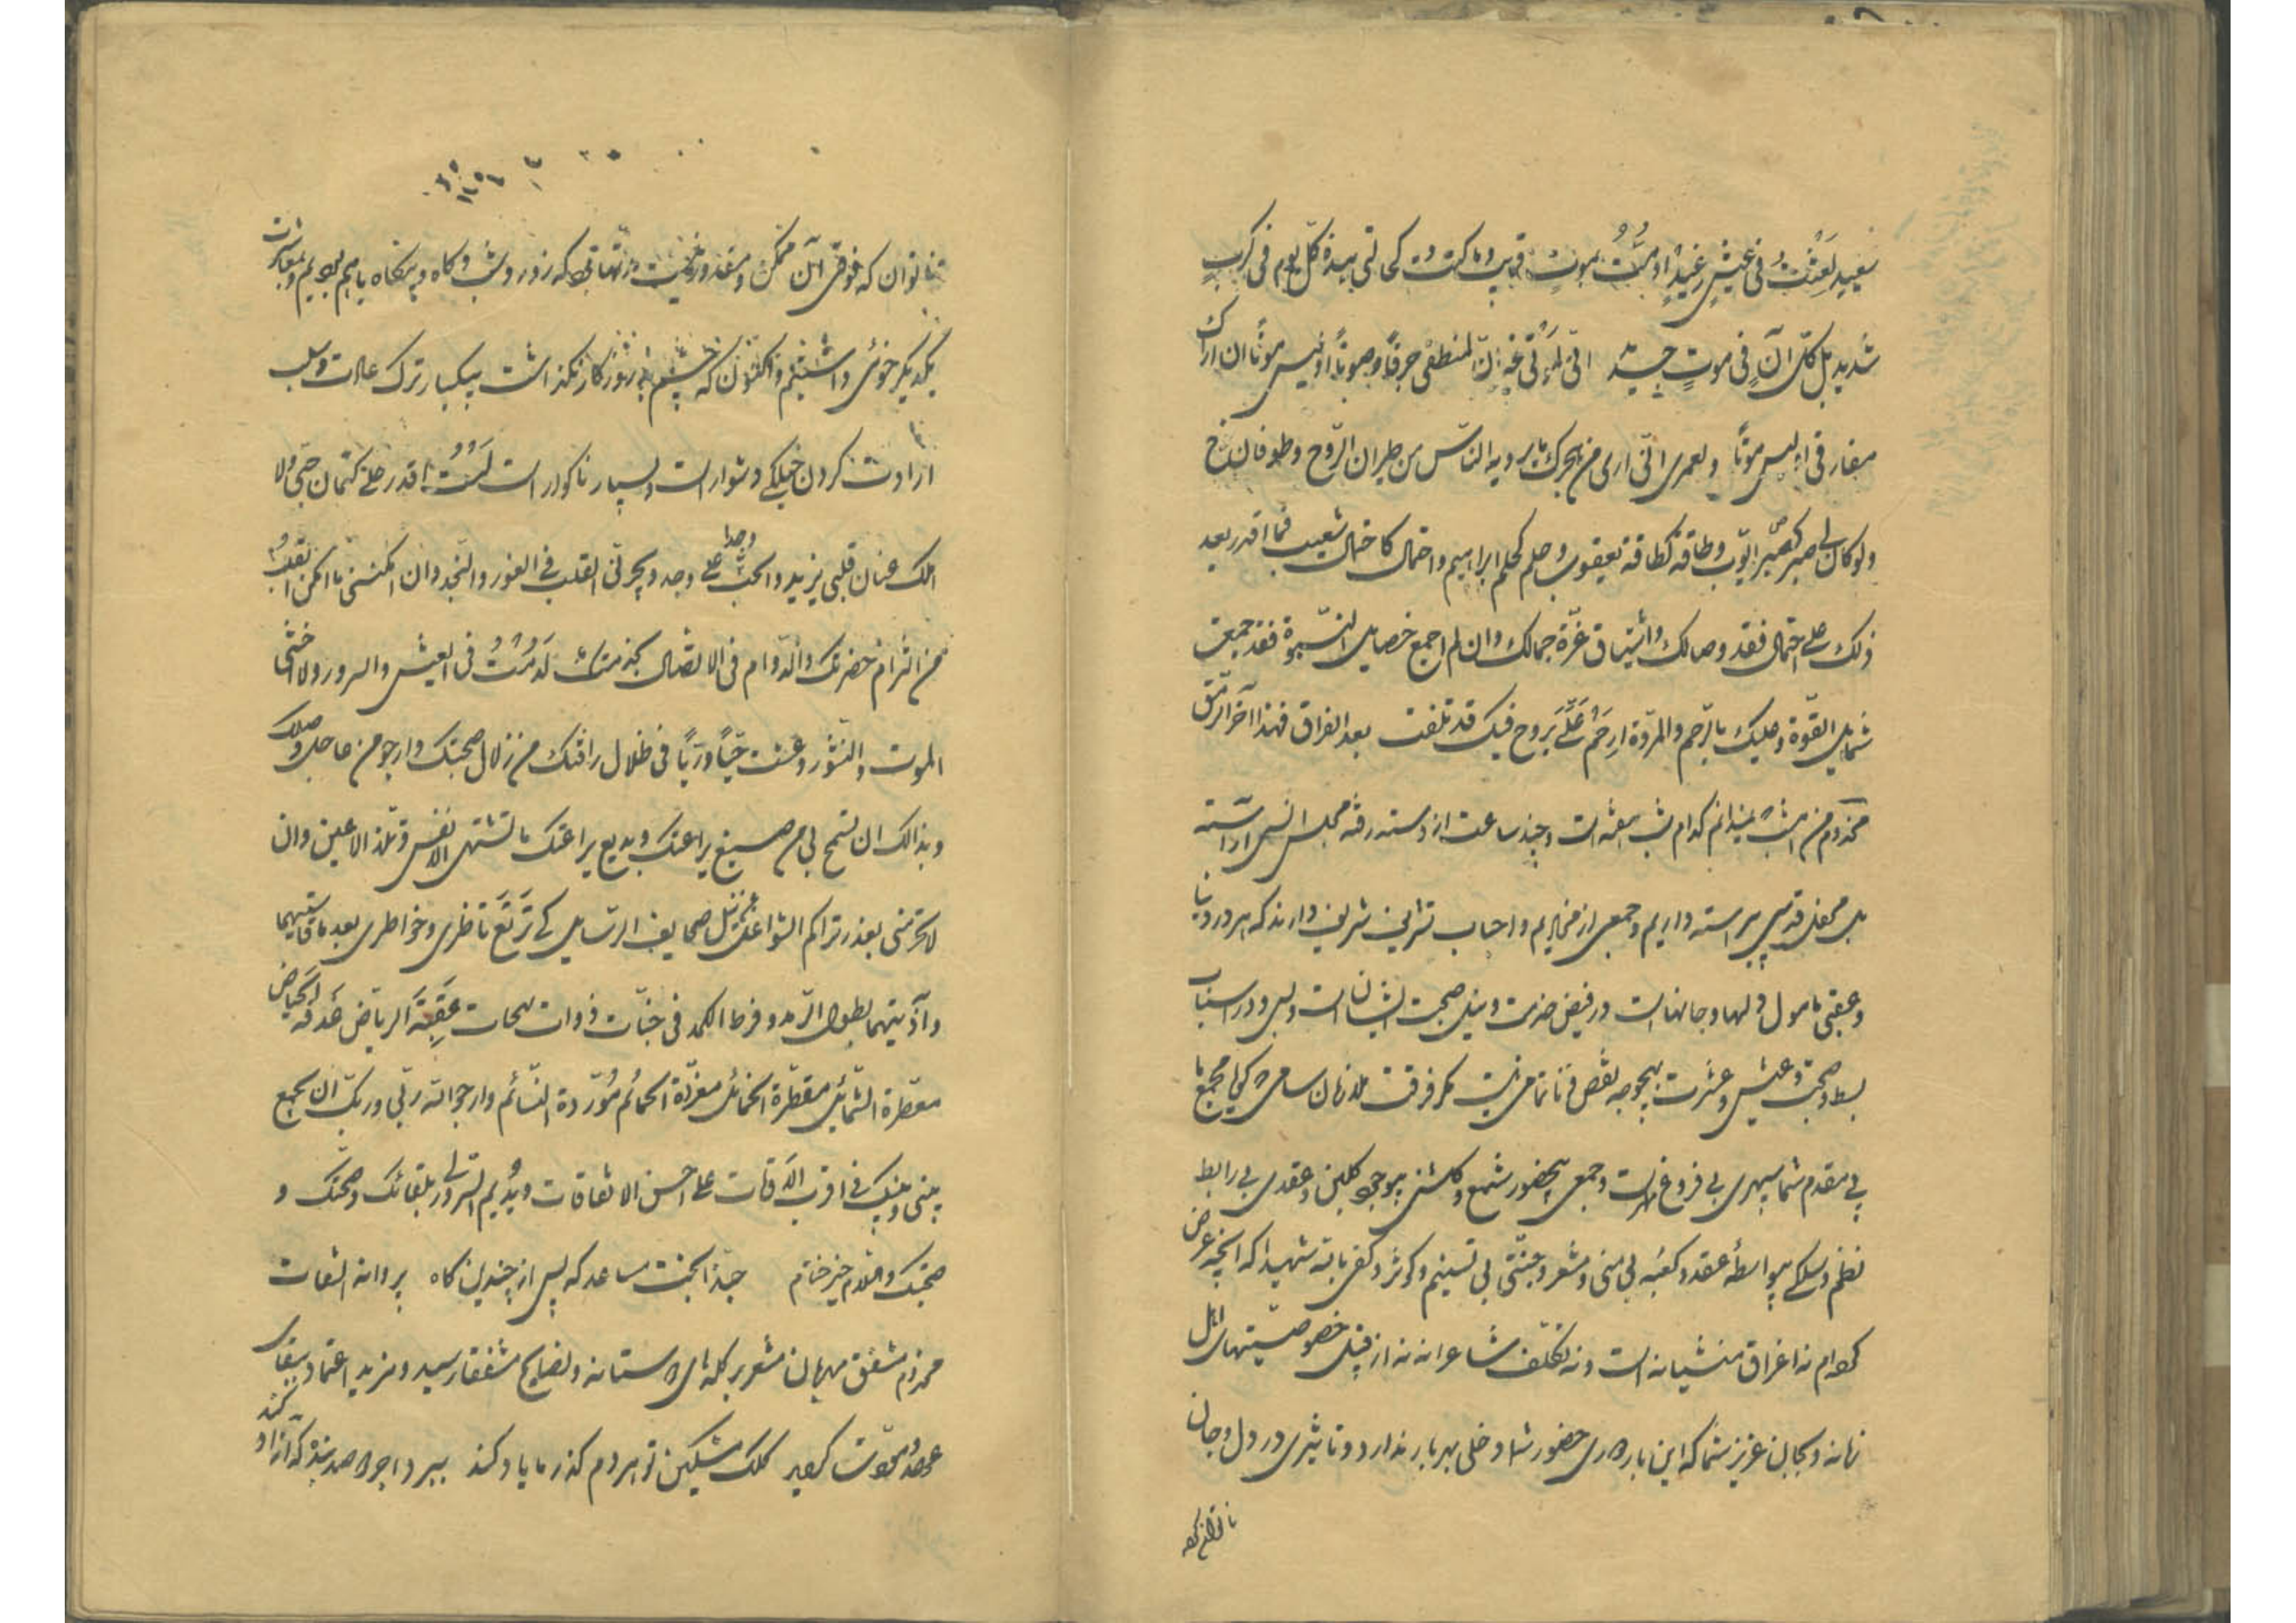 سعید لعشت فی عیش رغید او متّ بموت قریب و ما کنت کحالتی هذه کلّ یوم فی کرب
شدید بل کلّ آن فی موت جدید انّی لم تُبق غیر ان المنطفی حرفاً و صوتاً او لیس موتاً ان اراک
مفارقی او لیس موتاً و لعمری انّی اری من هجرک ما یرویه النّاس من طیران الرّوح و طوفان نوح
ولو کان لی صبر کصبر ایّوب و طاقة کطاقة یعقوب و حلم کحلم ابراهیم و احتمال کاحتمال شعیب فما اقدر بعد
ذلک علی احتمال فقد وصالک و اشتیاق غرّة جمالک و ان لم اجمع خصایل النبوّة فقد جمعت
شمایل القوّة و علیک بالرّحم و المروّة ارحم علیّ بروح فیک قد تلفت بعد الفراق فهذا آخر الرّمق
مخدوم من امشب نمیدانم کدام شب هفته است و چند ساعت از دسته رفته مجلس انسی آراسته
بل محفل قدسی پیراسته داریم و جمعی از مخادیم و احباب تشریف شریف دارند که هر دو دنیا
و عقبی مامول دلها و جانهاست در فیض خدمت و نیل صحبت ایشان است و بس و در اسباب
بسط و صحبت و عیش و عشرت بهیچوجه نقص و ناتمامی نیست مگر فرقت ملازمان سامی که گویا مجمع ما
بی مقدم شما سپهری بی فروغ مهر است و جمعی بیحضور شمع و گلشنی بیوجود گلبن و عقدی بی رابط
نظم و سلکی بیواسطه عقد و کعبه بی منی و مشعر و جنّتی بی تسنیم و کوثر و کفی بالله شهیدا که آنچه عرض
کردم نه اغراق منشیانه است و نه تکلّف شاعرانه نه از قبیل خصوصیّتهای اهل
زمانه و بجان عزیز شما که این بار دوری حضور شما دخلی بهر بار ندارد و تاثیری در دل و جان
ناتوان که
ناتوان که فوق آن ممکن و مقدور نیست در نهایتی که روز و شب و گاه و بیگاه با هم بودیم و بمعاشرت
یکدیگر خوئی داشتیم و اکنون که چشم بد روزگار نگذاشت بیکبار ترک عادت و سلب
ارادت کردن خیلکی دشوار است و بسیار ناگوار است لست اقدر علی کتمان حبّی و لا
املک عنان قلبی یزید و الحبّ علی وجد وجدا و یجرنی القلب فی الغور و النجد و ان امکننی ما امکن القلب
من التزام حضرتک و الدّوام فی الاتصال بخدمتک لدمت فی العیش و السرور و لا اخشی
الموت و النّشور و عشت حیّاً و ریّاً فی ظلال رافتک من زلال صحبتک و ارجو من صاحبی وصلک
و بذالک ان تسمح لی من صبیغ یراعتک و بدیع براعتک ما تشتهی الانفس و تلذ الاعین و ان
لا تحرمنی بعذر تراکم الشواغل عن نیل صحایف الرسایل کی ترتع ناظری و خواطری بعد ما قاسیتهما
و آذیتهما بطول الرّمد و فرط الکمد فی جنّات ذوات بهجات عبقة الریاض غدقة الحیاض
معطّرة الشّمائل مقطّرة الخمائل مغرّدة الحمائم مورّدة النسائم و ارجو الله ربّی و ربّک ان یجمع
بینی و بینک فی اقرب الاوقات علی احسن الاتفاقات و یدیم لی السّرور بلقائک و صحّتک و
صحبتک والسلام خیر ختام حبّذا بخت مساعد که پس از چندین گاه پروانه التفات
مخدوم مشفق مهربان مشعر بر گله‌های دوستانه و نصایح مشفقانه رسید و مزید اعتماد ببقای
عهد و مودّت گردید کلک مشکین تو هر دم که ز ما یاد کند ببرد اجر دو صد بنده که آزاد کند